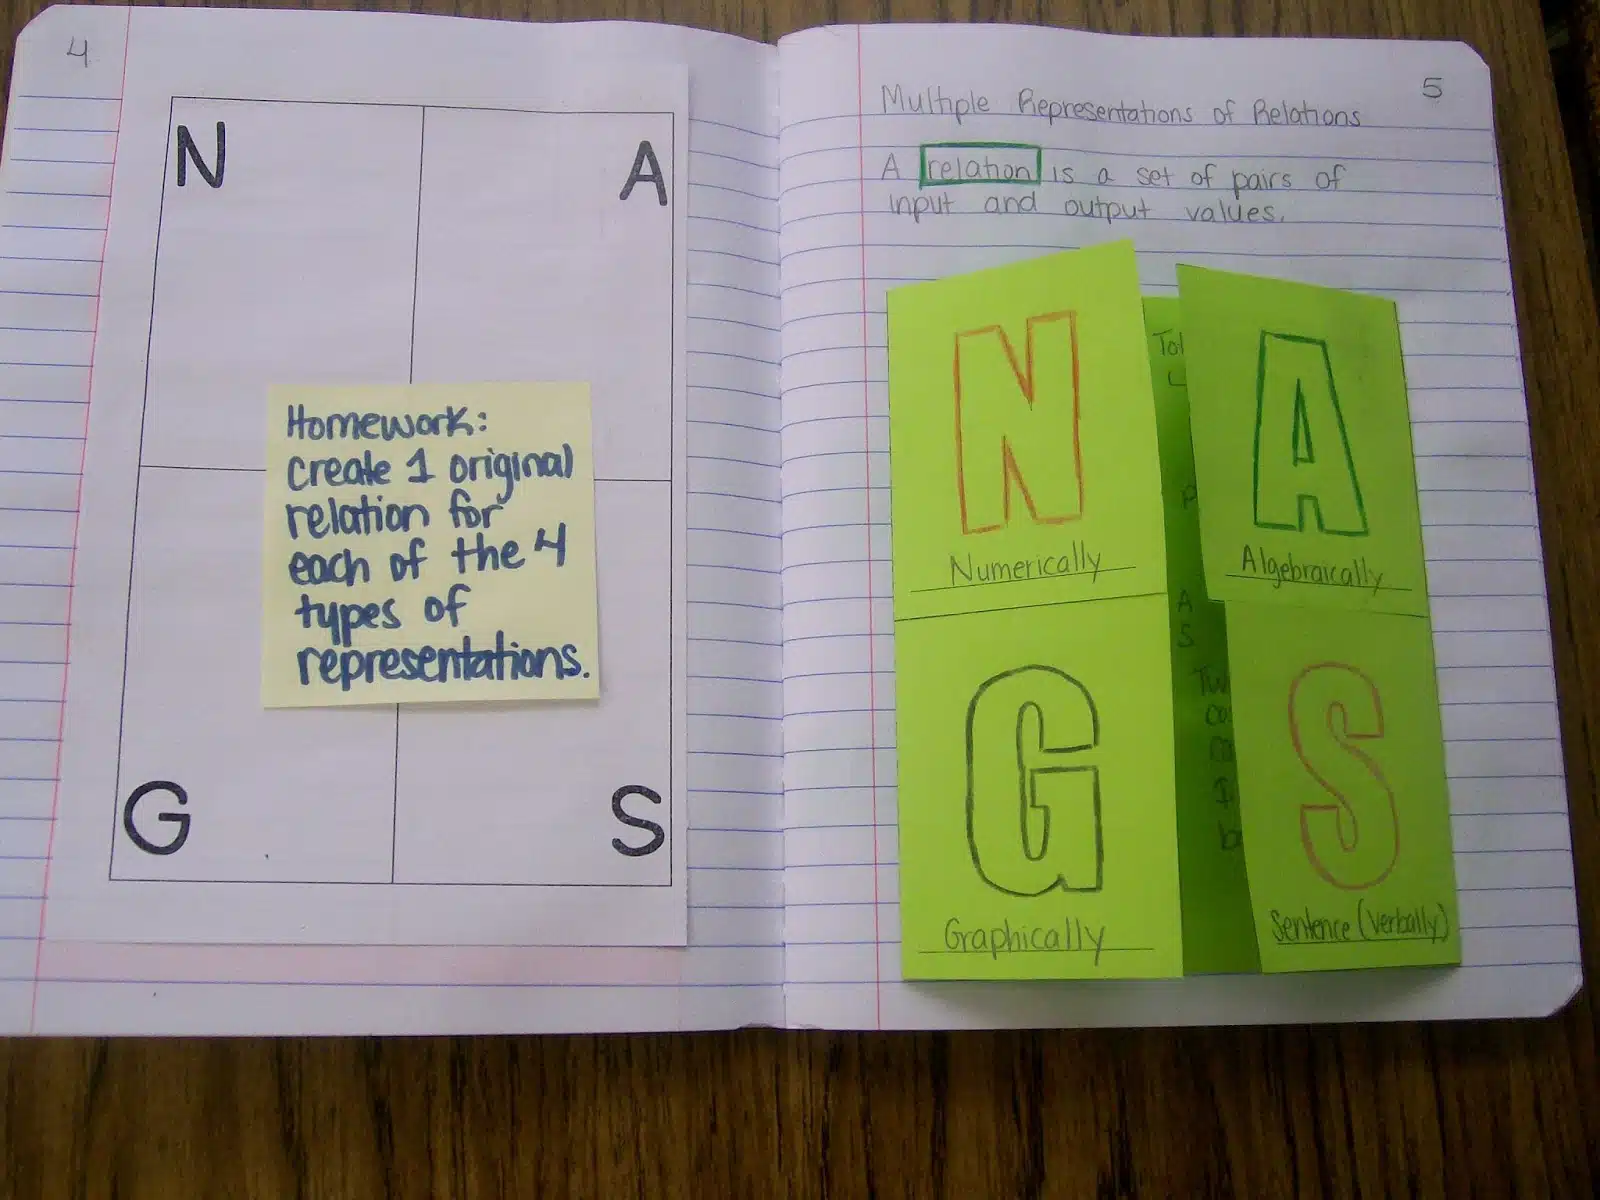 4
N
A
Homework:
create 1 original
relation for
each of the 4
types of
representations.
G
S
5
Multiple Representations of Relations
A relation is a set of pairs of
input and output values.
N
Numerically
A
Algebraically
G
Graphically
S
Sentence (Verbally)